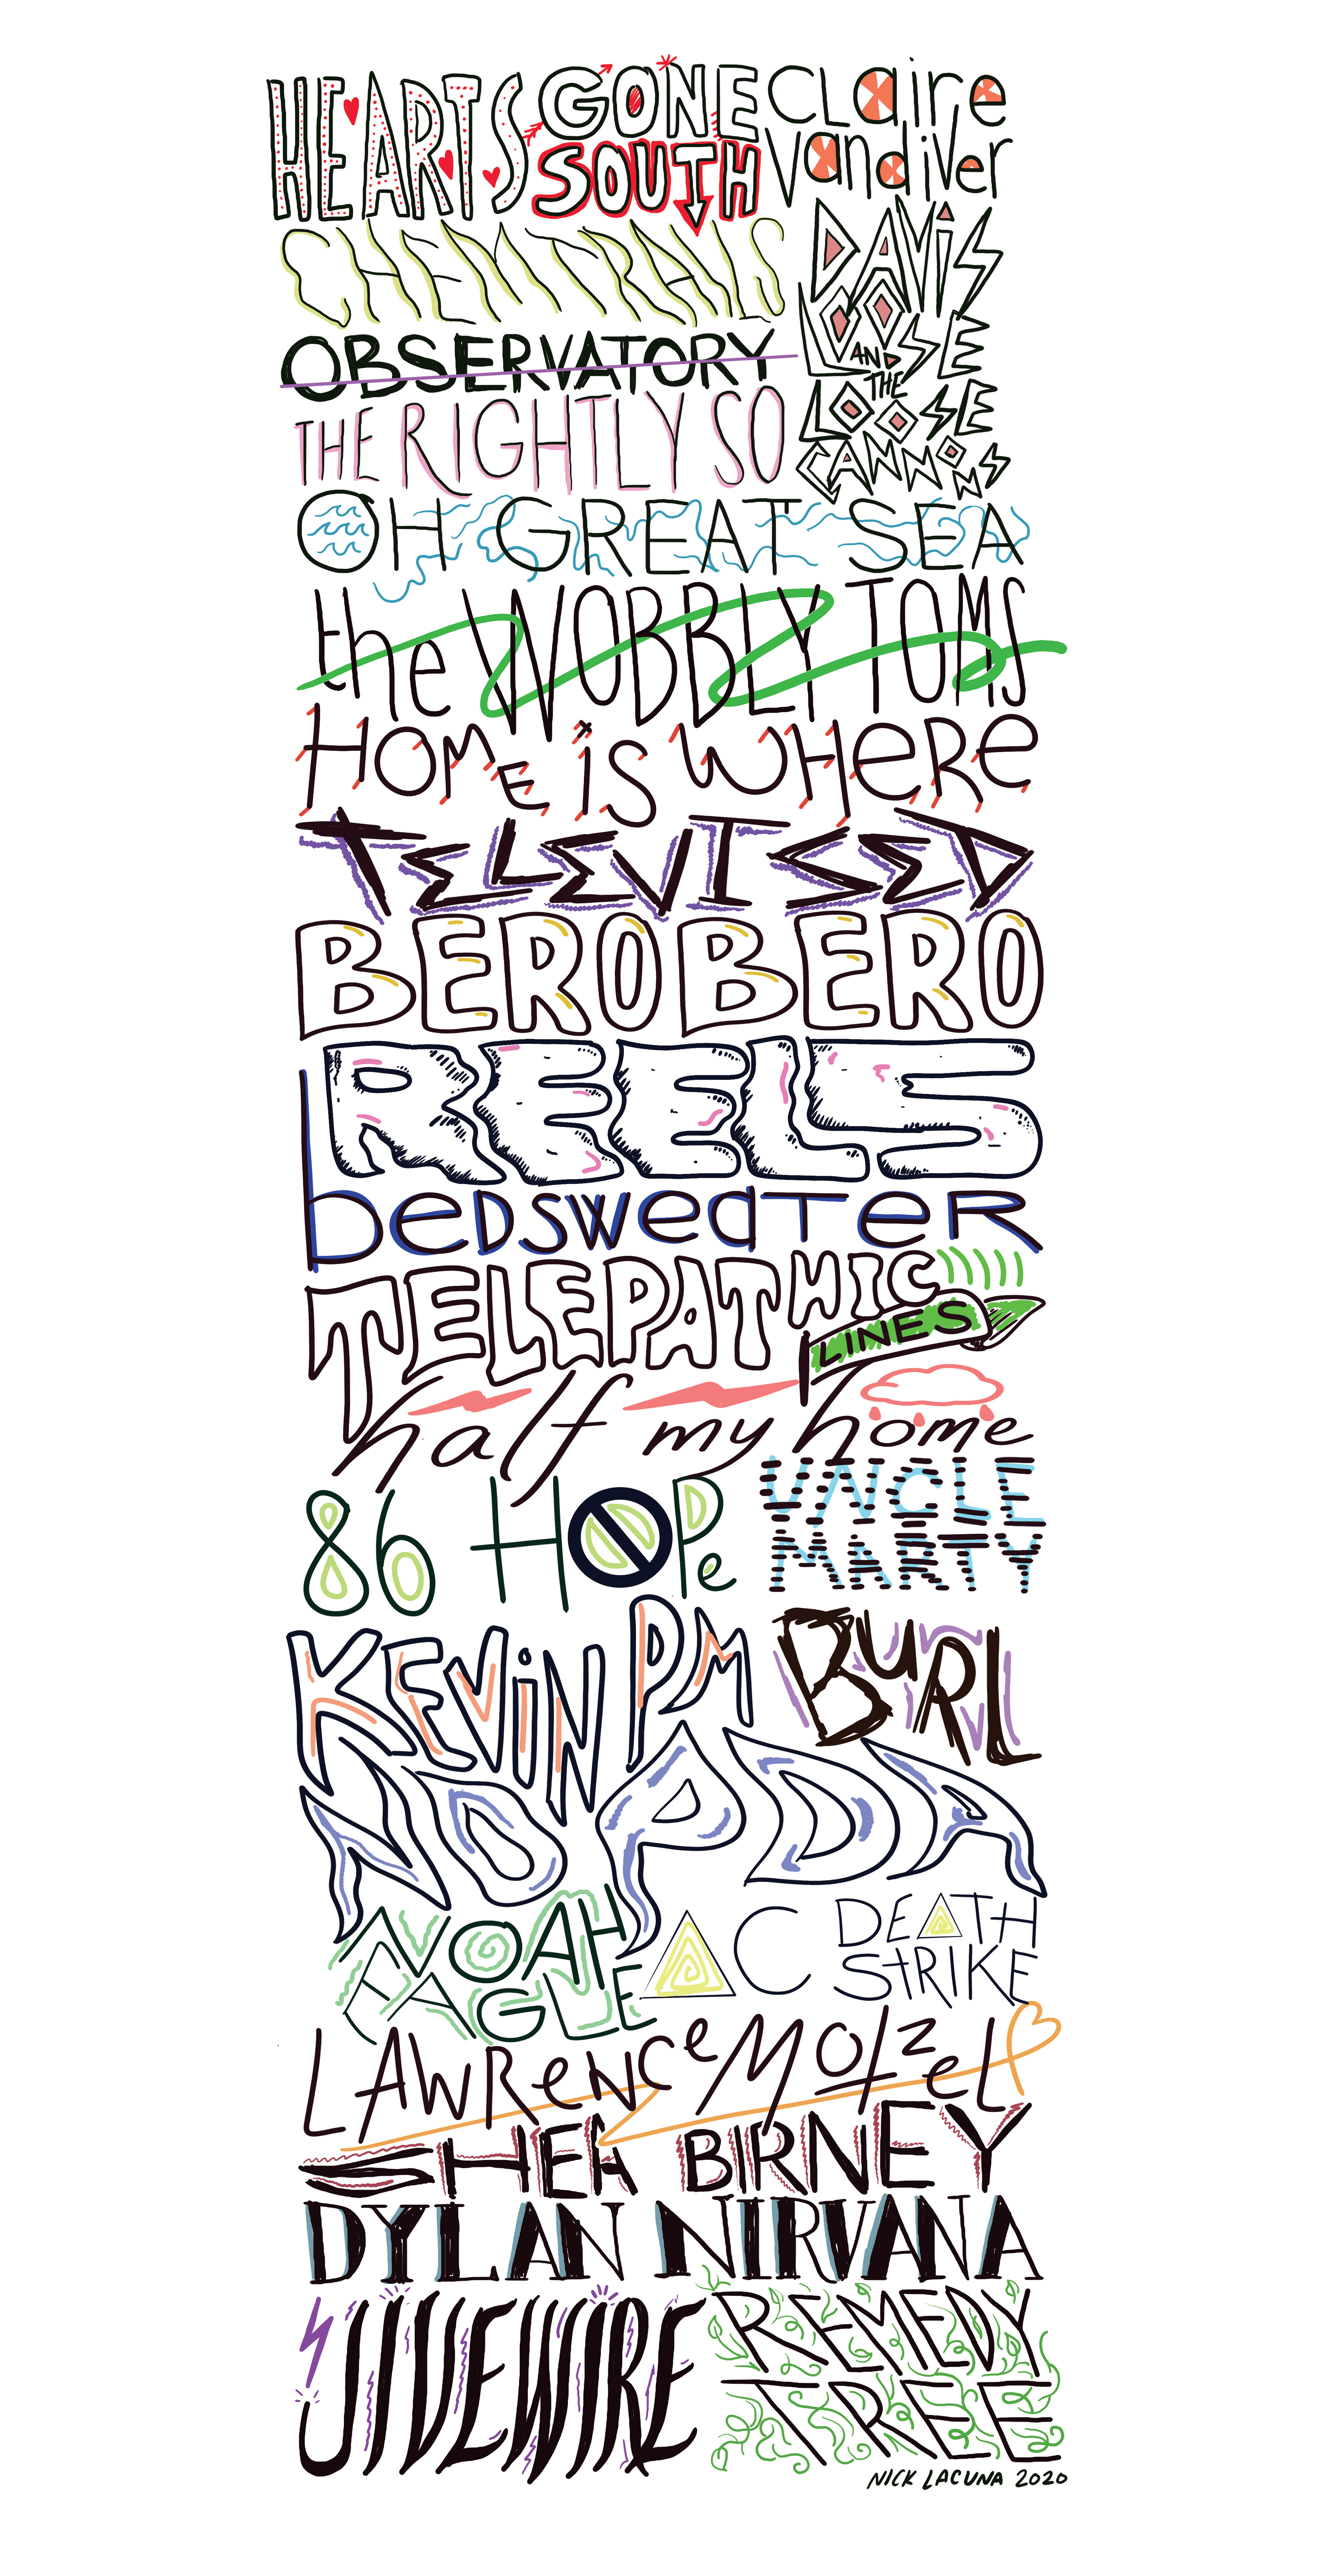 HEARTS GONE SOUTH
CLaire vandiver
CHEMTRAILS
DAViS LOOSE AND THE LOOSE CANNONS
OBSERVATORY
THE RIGHTLY SO
OH GREAT SEA
the WOBBLY TOMS
HOME iS WHeRe
TELEVISED
BERO BERO
REELS
beDsweaTeR
TELEPATHIC LINES
half my home
86 HOPe
UNCLE MARTY
KEViN PM
BURL
NO PDA
NOAH EAGLE
AC DEATH STRIKE
LAWReNCe MOTzeL
SHEA BIRNEY
DYLAN NIRVANA
JIVEWIRE
REMEDY TREE
NICK LACUNA 2020